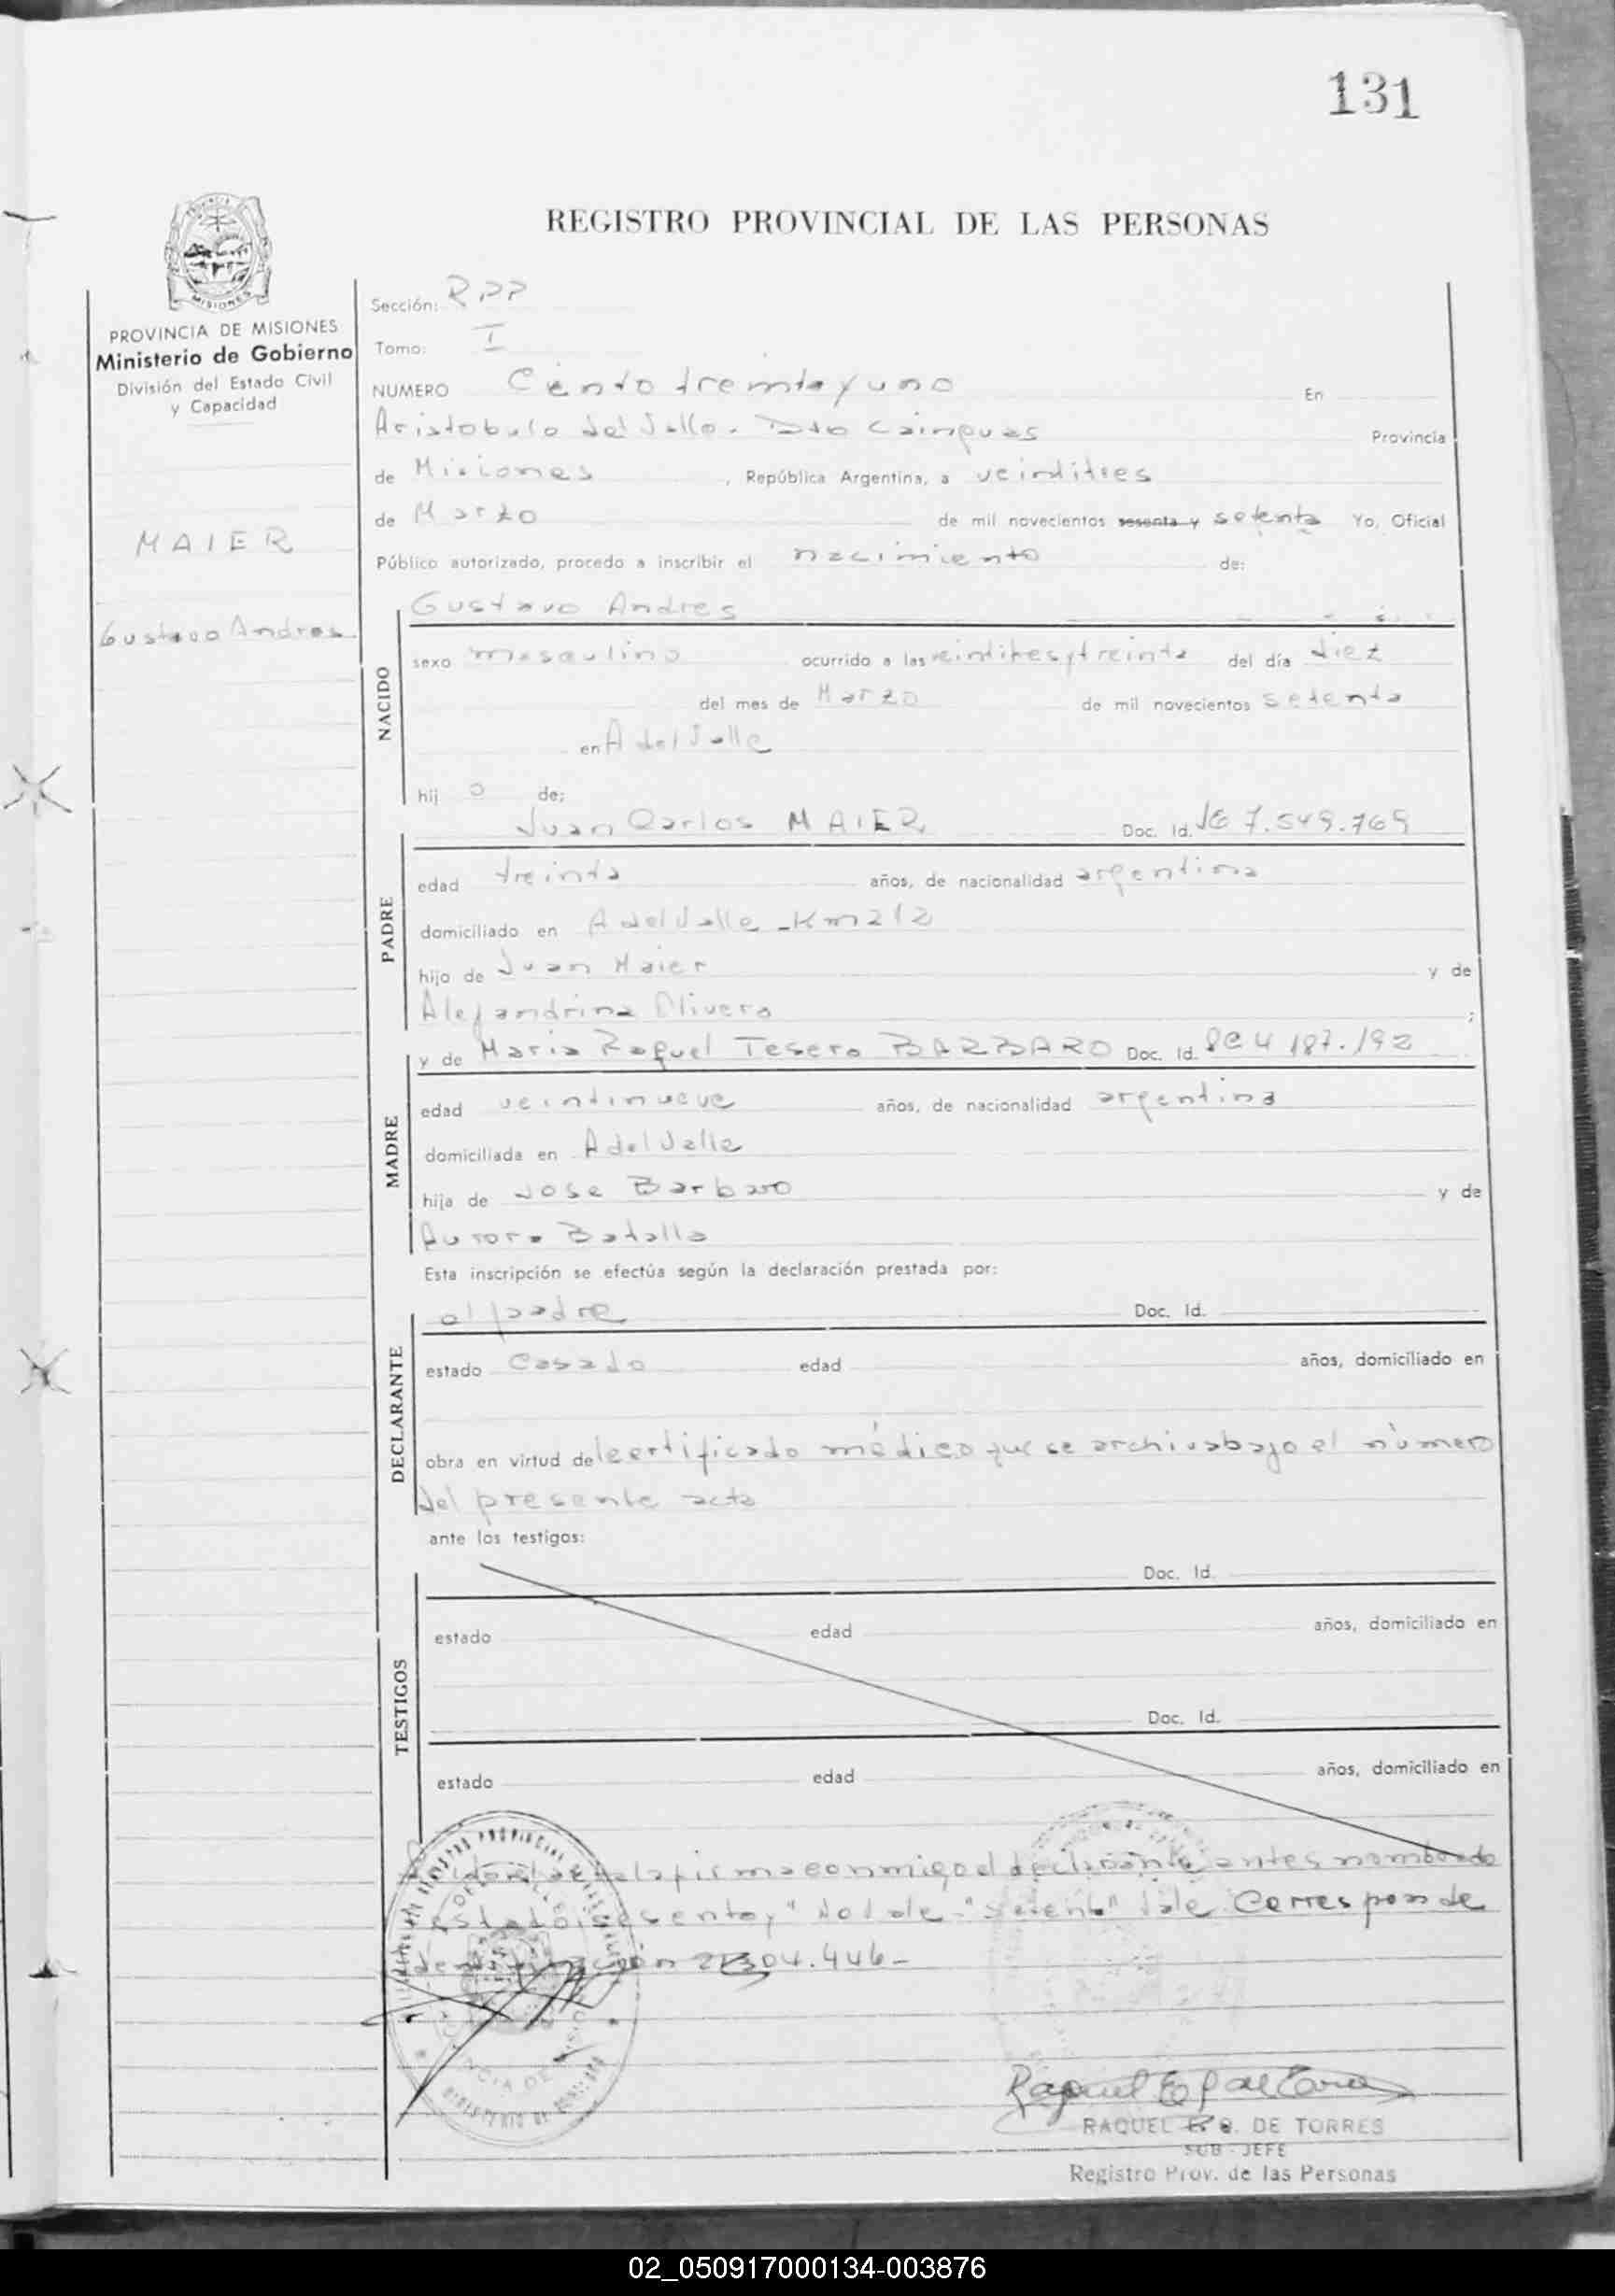 131
REGISTRO PROVINCIAL DE LAS PERSONAS
MISIONES
PROVINCIA DE MISIONES
Ministerio de Gobierno
División del Estado Civil
y Capacidad
MAIER
Gustavo Andres
Sección: RPP
Tomo: I
NUMERO Ciento treinta y uno En
Aristobulo del Valle. Dto Cainguas Provincia
de Misiones , República Argentina, a veintitres
de Marzo de mil novecientos sesenta y setenta Yo, Oficial
Público autorizado, procedo a inscribir el nacimiento de:
Gustavo Andres
NACIDO
sexo masculino ocurrido a las veintitres y treinta del día diez
del mes de Marzo de mil novecientos setenta
en A del Valle
hij o de:
Juan Carlos MAIER Doc. Id. 7.549.769
PADRE
edad treinta años, de nacionalidad argentina
domiciliado en A del Valle - Km 212
hijo de Juan Maier y de
Alejandrina Olivera ;
y de Maria Raquel Tesera BARBARO Doc. Id. 4 187.192
MADRE
edad veintinueve años, de nacionalidad argentina
domiciliada en A del Valle
hija de Jose Barbaro y de
Aurora Batalla
Esta inscripción se efectúa según la declaración prestada por:
el padre Doc. Id.
DECLARANTE
estado Casado edad años, domiciliado en
obra en virtud del certificado médico que se archiva bajo el número
del presente acta
ante los testigos:
Doc. Id.
TESTIGOS
estado edad años, domiciliado en
Doc. Id.
estado edad años, domiciliado en
la firma conmigo el declarante antes nombrado
"sesenta y" No vale - "setenta" Vale. Corresponde
04.446-
RAQUEL DE TORRES
SUB - JEFE
Registro Prov. de las Personas
02_050917000134-003876